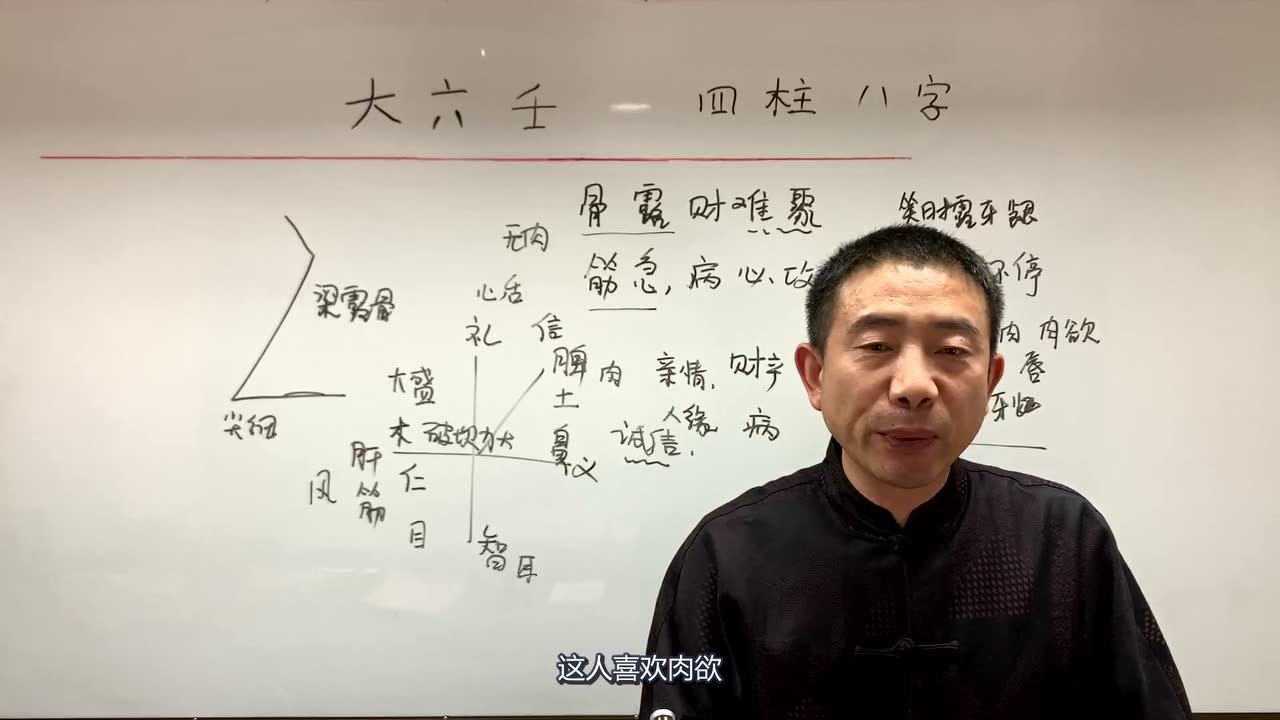 大六壬 — 四柱八字
骨露财难聚
笑时露牙龈
无肉
筋急，病心攻
不停
心舌
梁露骨
礼
信
肉欲
脾
肉 亲情，财
唇
大盛
土
人缘
尖细
木 破坏力大
鼻
诚信，
病
义
肝
仁
风
筋
目
智
耳
这人喜欢肉欲